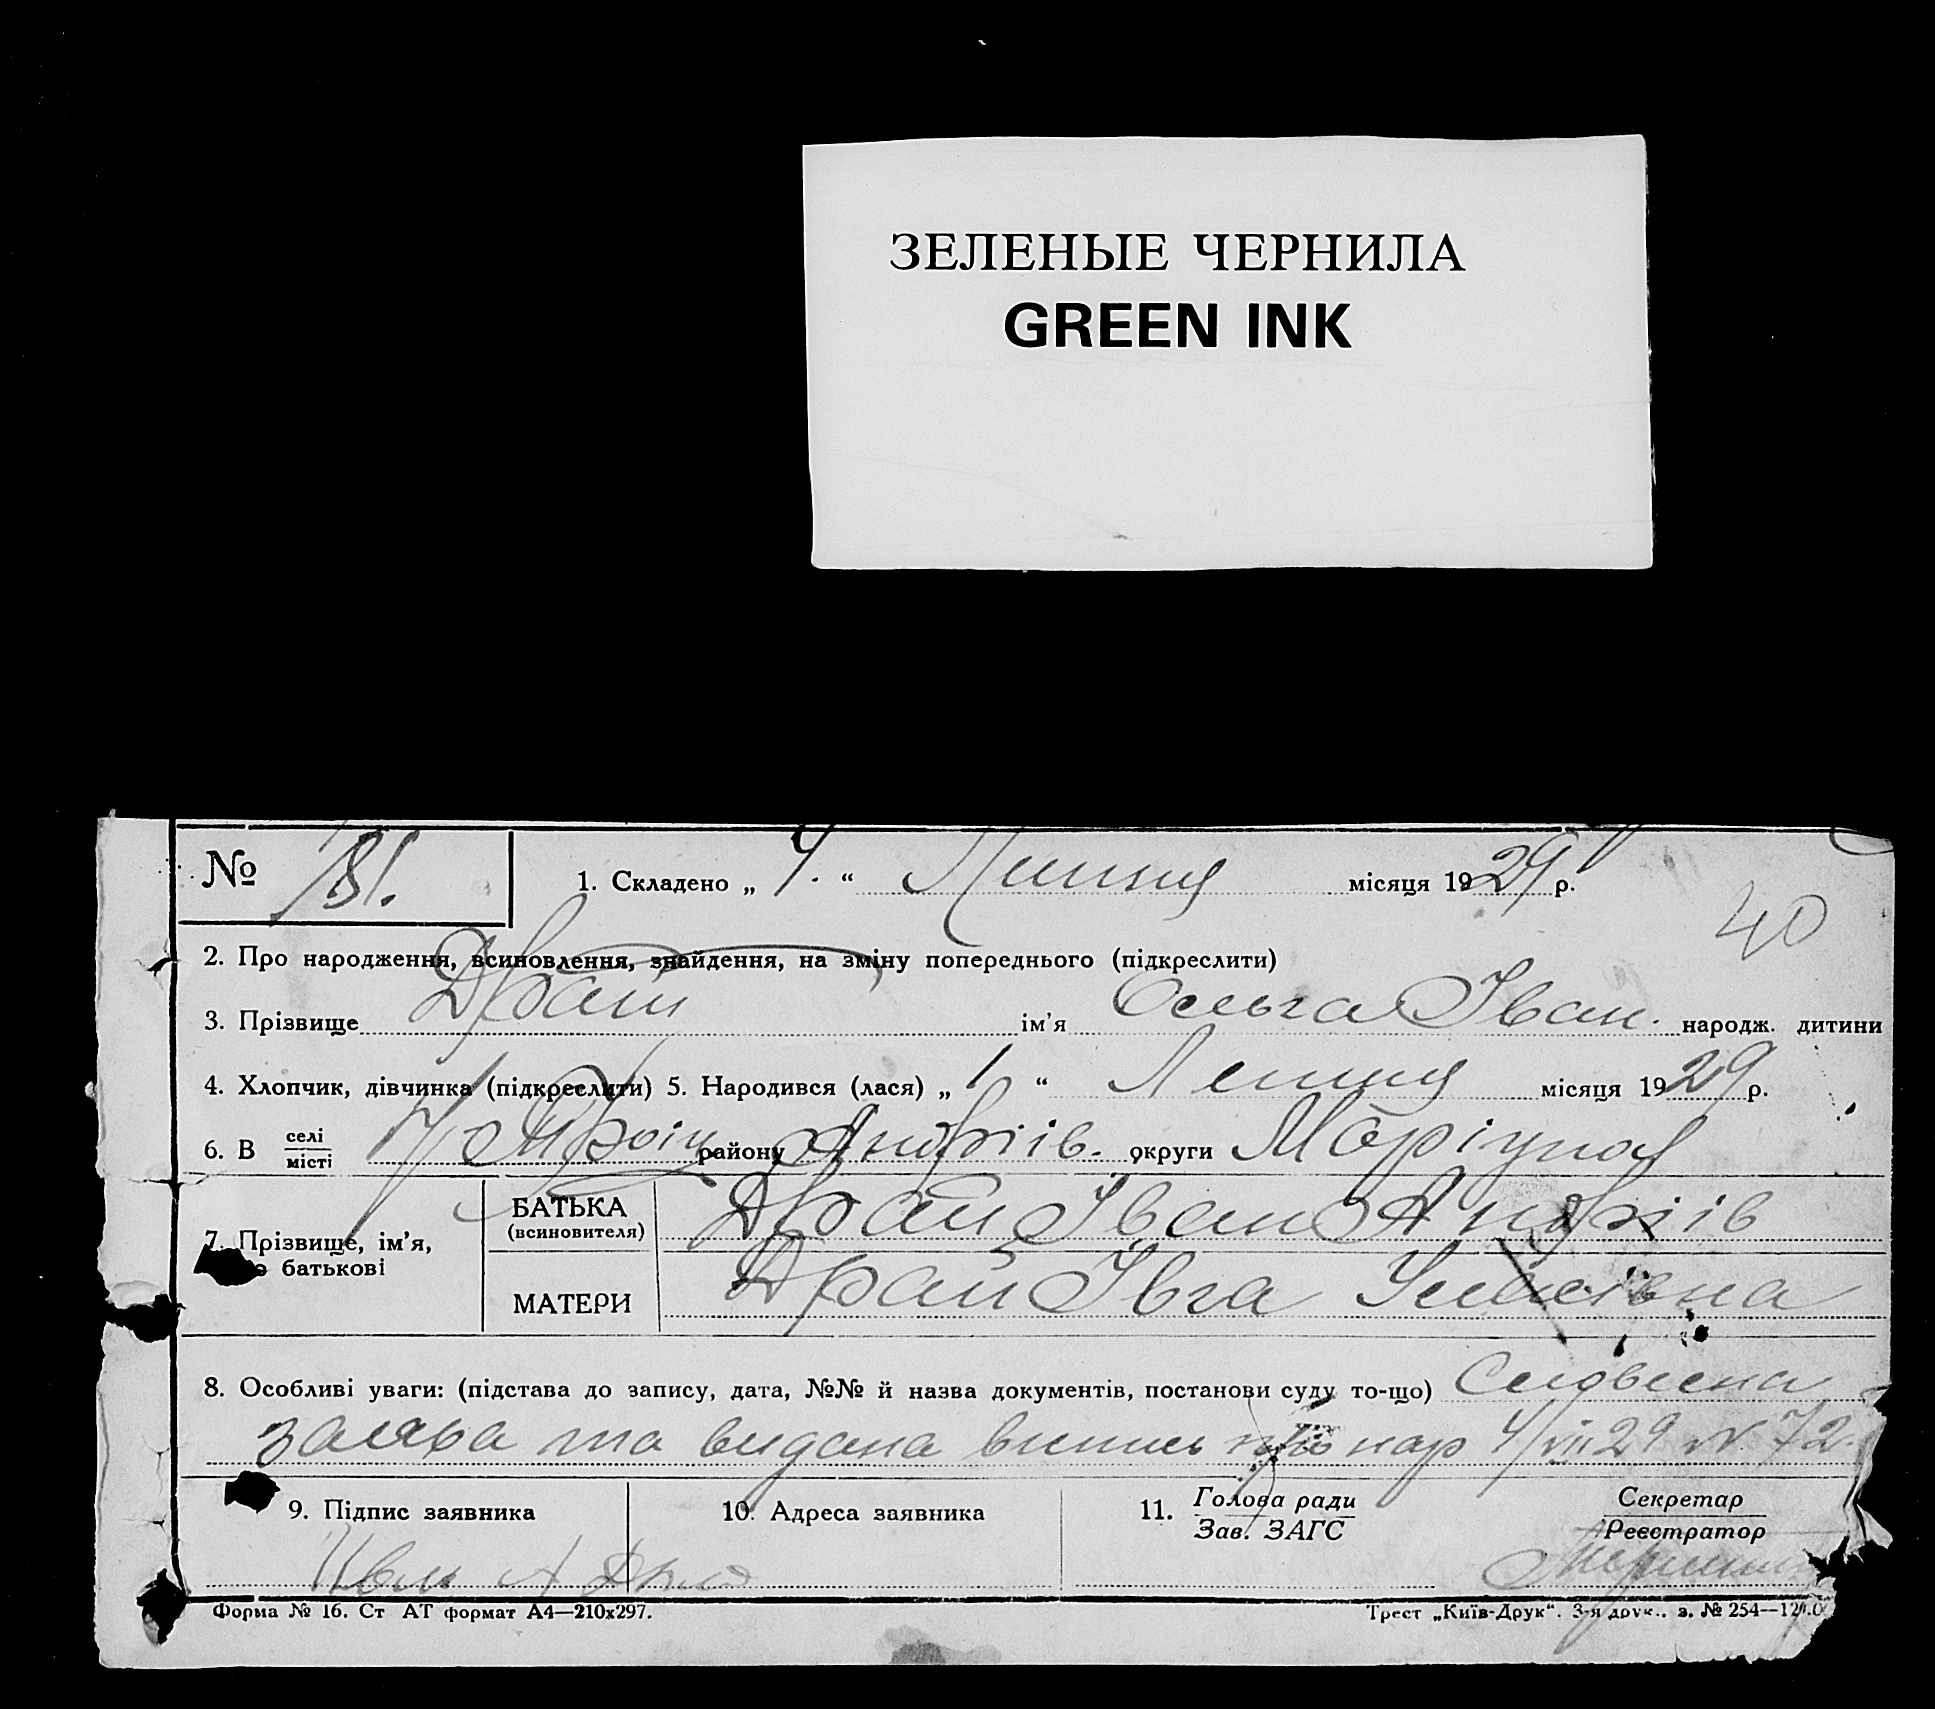 ЗЕЛЕНЫЕ ЧЕРНИЛА
GREEN INK
№ 181.
1. Складено „ 4. “ Липня місяця 1929 р.
40
2. Про народження, всиновлення, знайдення, на зміну попереднього (підкреслити)
3. Прізвище Драй ім'я Ольга Іван. народж. дитини
4. Хлопчик, дівчинка (підкреслити) 5. Народився (лася) „ 1 “ Липня місяця 1929 р.
6. В селі
місті району Андріів. округи Маріупол
7. Прізвище, ім'я,
батькові
БАТЬКА
(всиновителя)
Драй Іван Андріів
МАТЕРИ
Драй Івга
8. Особливі уваги: (підстава до запису, дата, №№ й назва документів, постанови суду то-що) Словесна
заява та видана випись про нар 4/VII 29 № 72.
9. Підпис заявника
10. Адреса заявника
11. Голова ради
Зав. ЗАГС
Секретар
Реєстратор
Форма № 16. Ст АТ формат А4—210x297.
Трест „Київ-Друк“. 3-я друк.. з. № 254—12